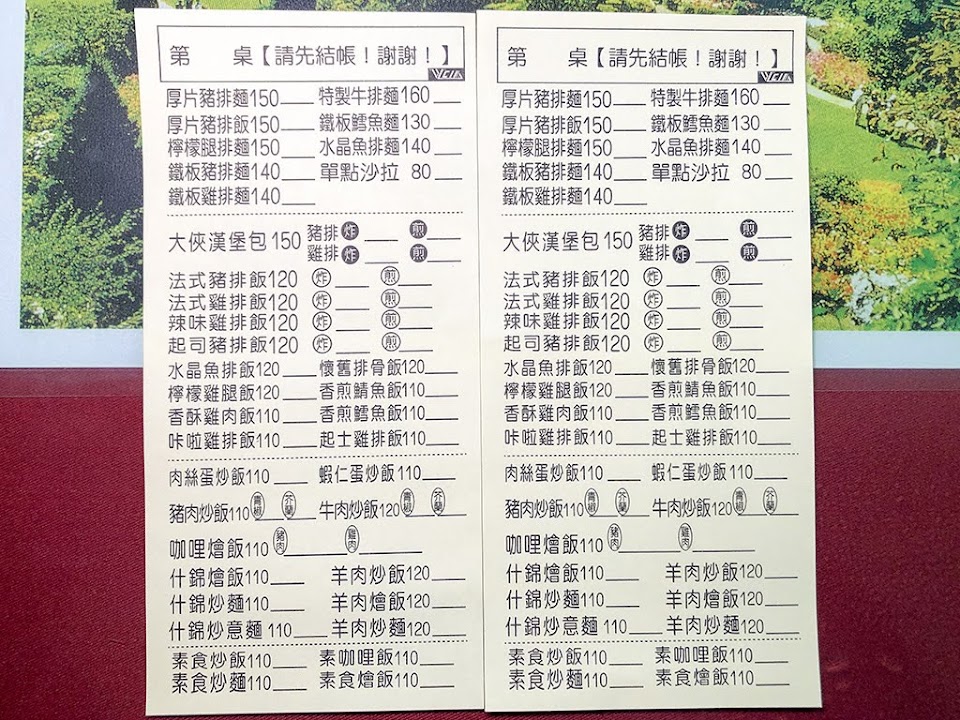 第 桌【請先結帳！謝謝！】
厚片豬排麵150 特製牛排麵160
厚片豬排飯150 鐵板鱈魚麵130
檸檬腿排麵150 水晶魚排麵140
鐵板豬排麵140 單點沙拉 80
鐵板雞排麵140
大俠漢堡包150 豬排 炸 煎
雞排 炸 煎
法式豬排飯120 炸 煎
法式雞排飯120 炸 煎
辣味雞排飯120 炸 煎
起司豬排飯120 炸 煎
水晶魚排飯120 懷舊排骨飯120
檸檬雞腿飯120 香煎鯖魚飯110
香酥雞肉飯110 香煎鱈魚飯110
咔啦雞排飯110 起士雞排飯110
肉絲蛋炒飯110 蝦仁蛋炒飯110
豬肉炒飯110 青椒 芥蘭 牛肉炒飯120 青椒 芥蘭
咖哩燴飯110 豬肉 雞肉
什錦燴飯110 羊肉炒飯120
什錦炒麵110 羊肉燴飯120
什錦炒意麵 110 羊肉炒麵120
素食炒飯110 素咖哩飯110
素食炒麵110 素食燴飯110
第 桌【請先結帳！謝謝！】
厚片豬排麵150 特製牛排麵160
厚片豬排飯150 鐵板鱈魚麵130
檸檬腿排麵150 水晶魚排麵140
鐵板豬排麵140 單點沙拉 80
鐵板雞排麵140
大俠漢堡包150 豬排 炸 煎
雞排 炸 煎
法式豬排飯120 炸 煎
法式雞排飯120 炸 煎
辣味雞排飯120 炸 煎
起司豬排飯120 炸 煎
水晶魚排飯120 懷舊排骨飯120
檸檬雞腿飯120 香煎鯖魚飯110
香酥雞肉飯110 香煎鱈魚飯110
咔啦雞排飯110 起士雞排飯110
肉絲蛋炒飯110 蝦仁蛋炒飯110
豬肉炒飯110 青椒 芥蘭 牛肉炒飯120 青椒 芥蘭
咖哩燴飯110 豬肉 雞肉
什錦燴飯110 羊肉炒飯120
什錦炒麵110 羊肉燴飯120
什錦炒意麵 110 羊肉炒麵120
素食炒飯110 素咖哩飯110
素食炒麵110 素食燴飯110